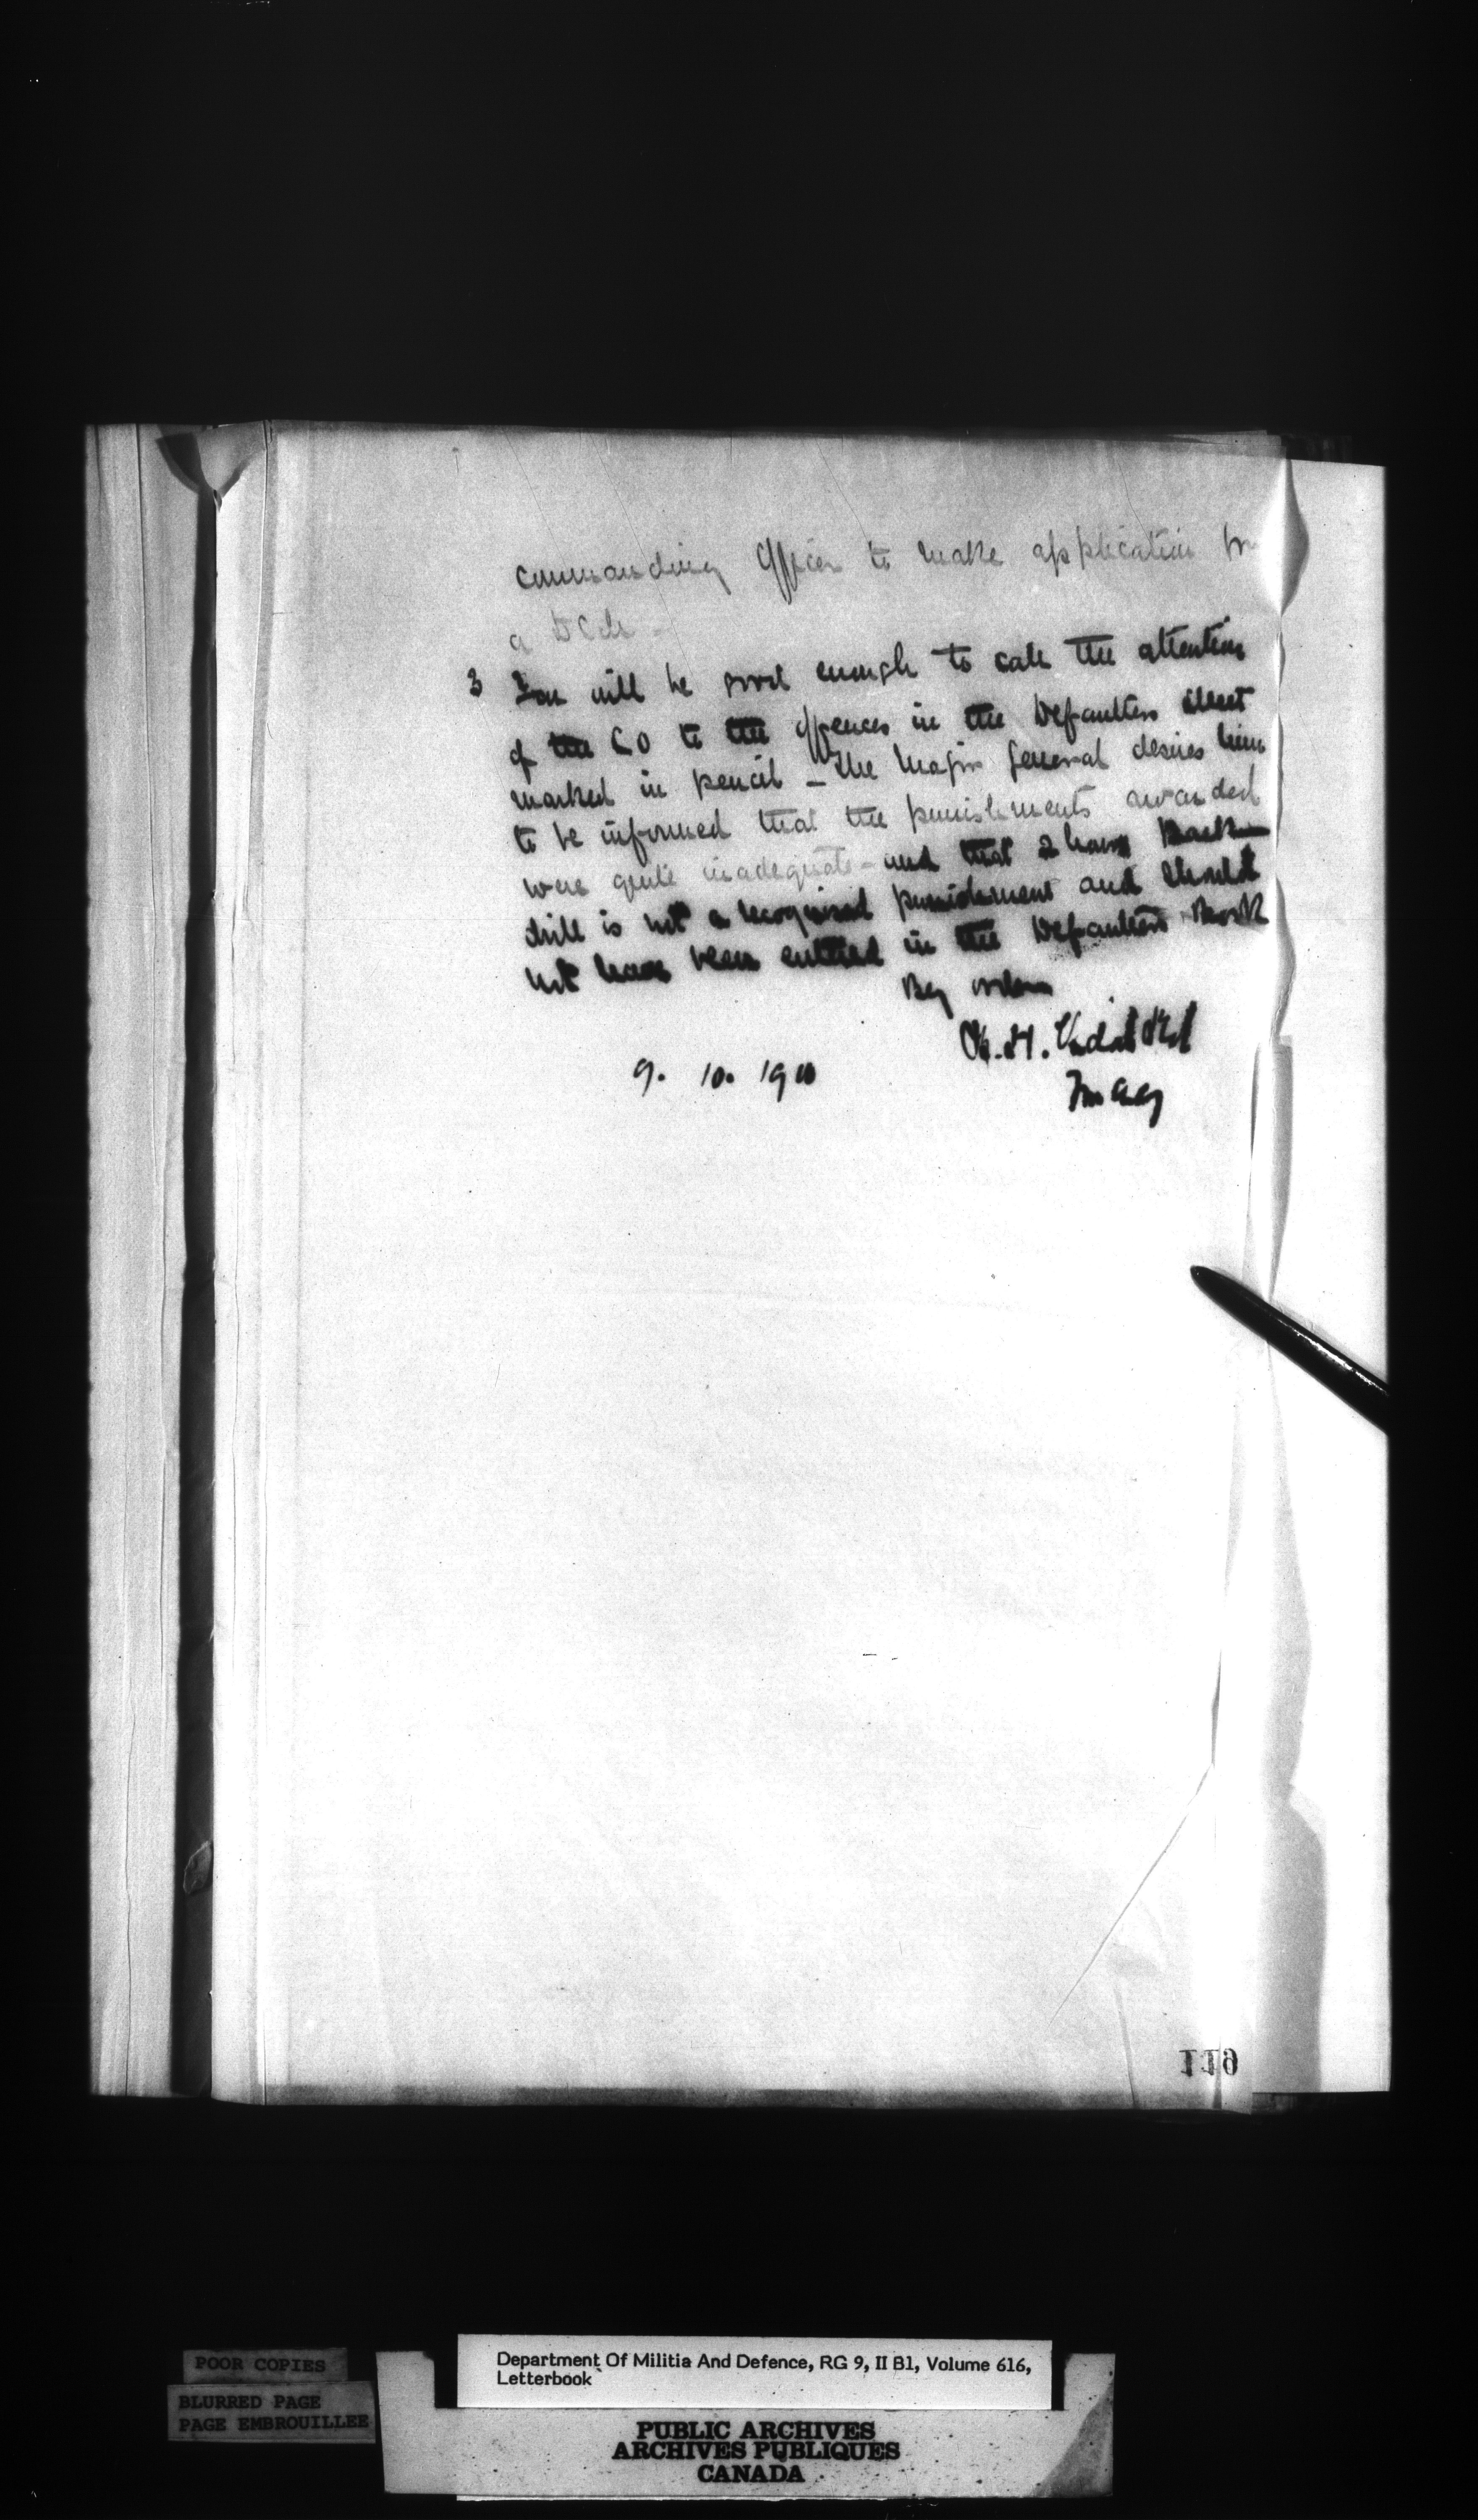 commanding Officer to make application for
a
3 You will be good enough to call the attention
of the CO to the offences in the Defaulters sheet
marked in pencil – The Major General desires him
to be informed that the punishments awarded
were quite inadequate – and that 2 hours
drill is not a recognised punishment and should
not have been entered in the Defaulters Book
By order
9. 10. 1900
119
POOR COPIES
BLURRED PAGE
PAGE EMBROUILLEE
Department Of Militia And Defence, RG 9, II B1, Volume 616,
Letterbook
PUBLIC ARCHIVES
ARCHIVES PUBLIQUES
CANADA